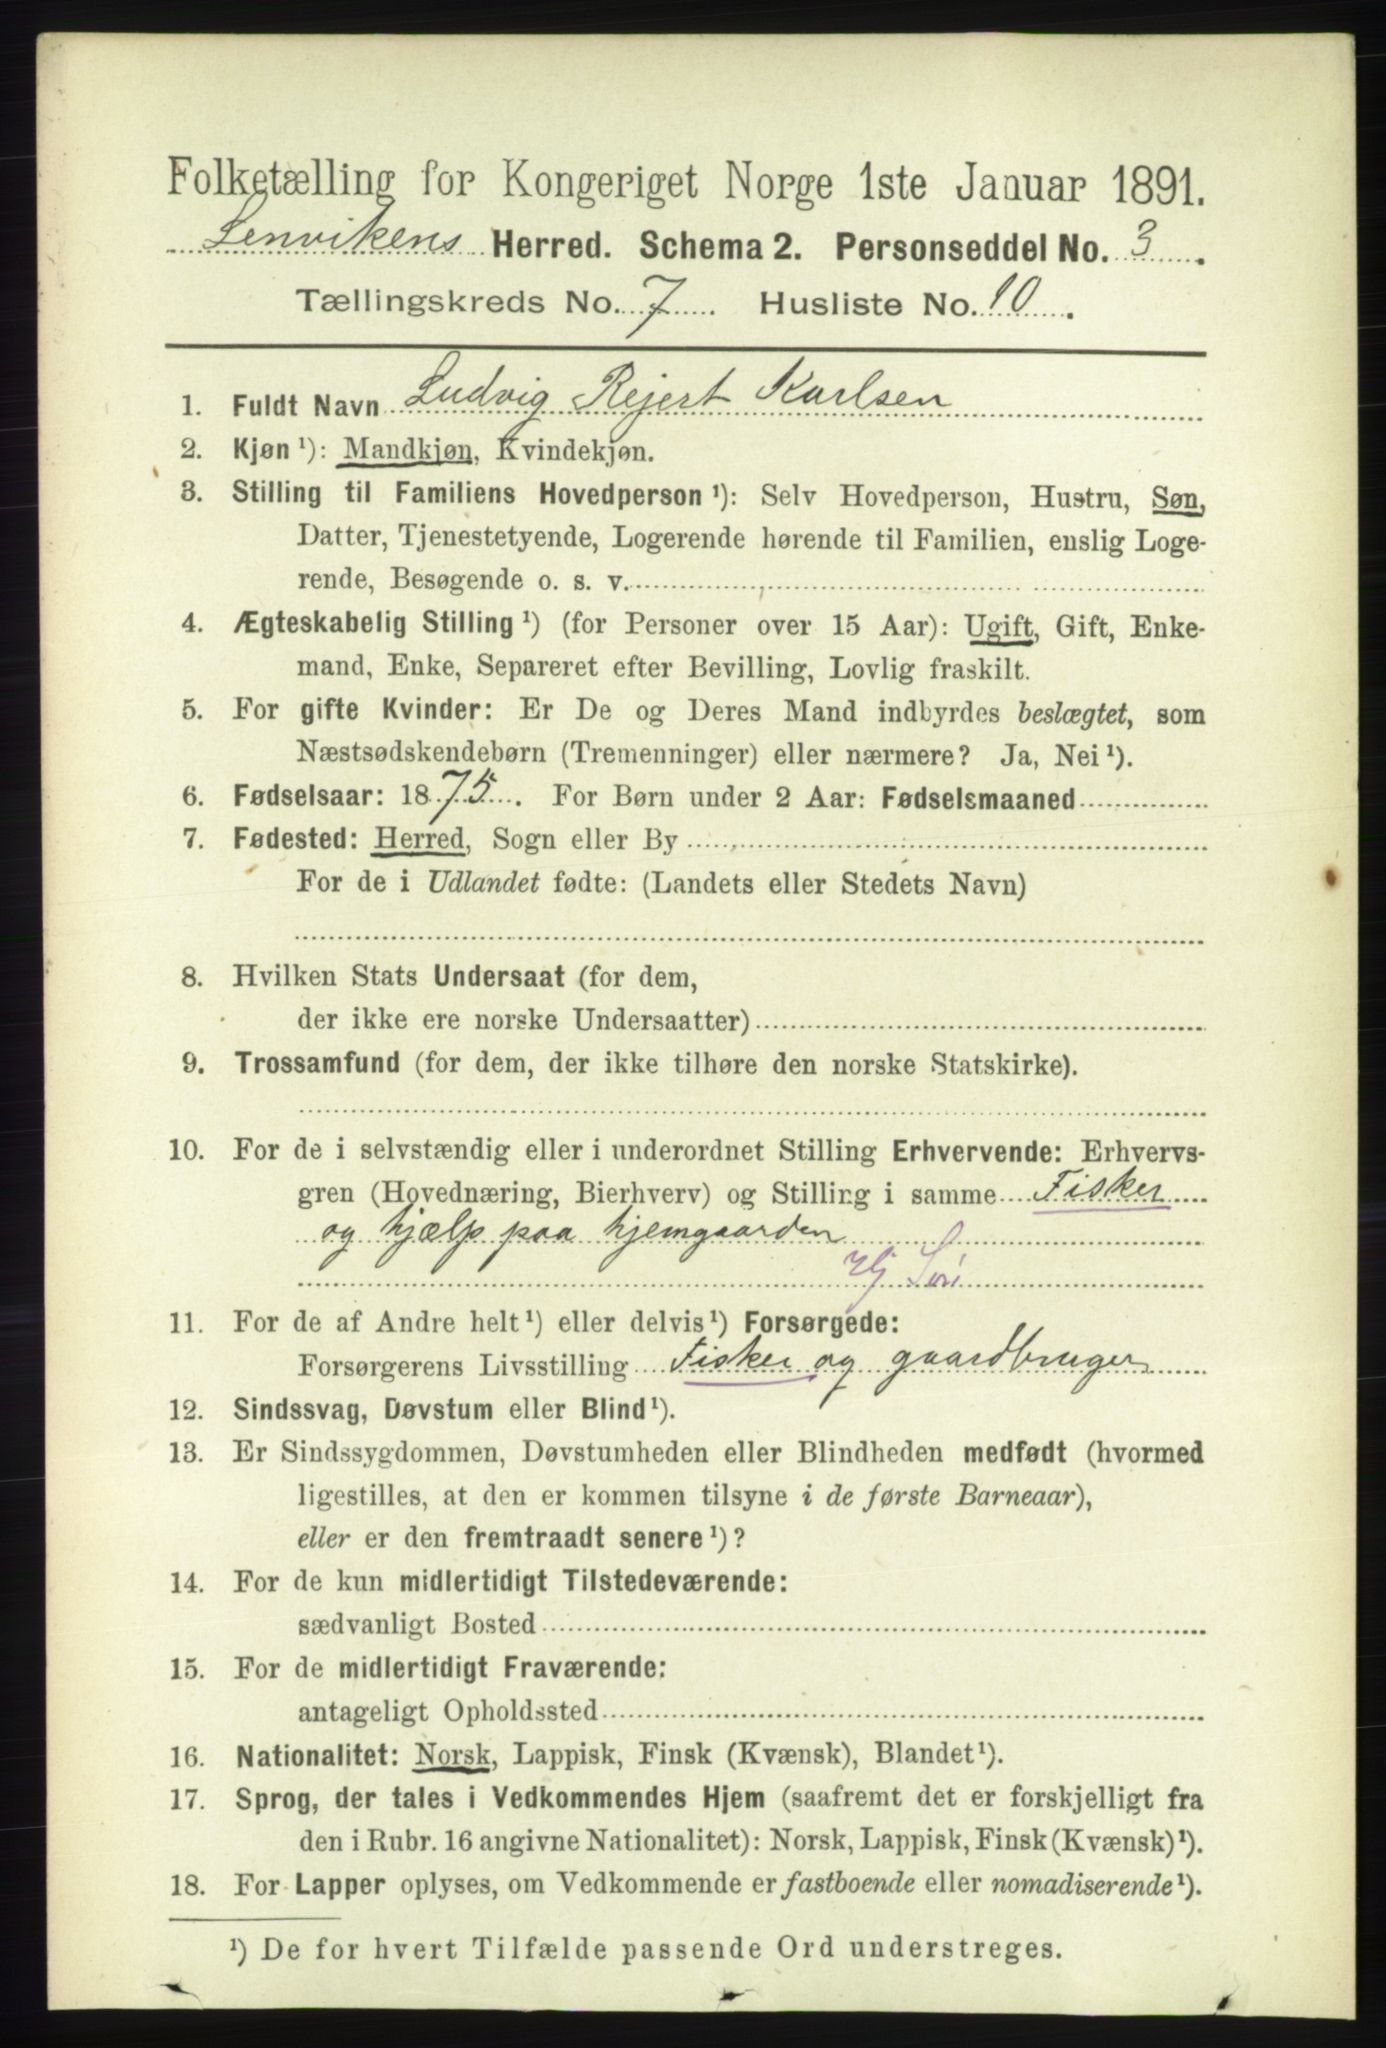 Folketælling for Kongeriget Norge 1ste Januar 1891.
Lenvikens Herred. Schema 2. Personseddel No. 3.
Tællingskreds No. 7. Husliste No. 10.
1. Fuldt Navn Ludvig Rejert Karlsen
2. Kjøn ¹): Mandkjøn, Kvindekjøn.
3. Stilling til Familiens Hovedperson ¹): Selv Hovedperson, Hustru, Søn,
Datter, Tjenestetyende, Logerende hørende til Familien, enslig Loge-
rende, Besøgende o. s. v.
4. Ægteskabelig Stilling ¹) (for Personer over 15 Aar): Ugift, Gift, Enke-
mand, Enke, Separeret efter Bevilling, Lovlig fraskilt.
5. For gifte Kvinder: Er De og Deres Mand indbyrdes beslægtet, som
Næstsødskendebørn (Tremenninger) eller nærmere? Ja, Nei ¹).
6. Fødselsaar: 1875. For Børn under 2 Aar: Fødselsmaaned
7. Fødested: Herred, Sogn eller By
For de i Udlandet fødte: (Landets eller Stedets Navn)
8. Hvilken Stats Undersaat (for dem,
der ikke ere norske Undersaatter)
9. Trossamfund (for dem, der ikke tilhøre den norske Statskirke).
10. For de i selvstændig eller i underordnet Stilling Erhvervende: Erhvervs-
gren (Hovednæring, Bierhverv) og Stilling i samme Fisker
og hjælp paa hjemgaarden
11. For de af Andre helt ¹) eller delvis ¹) Forsørgede:
Forsørgerens Livsstilling Fisker og gaardbruger
12. Sindssvag, Døvstum eller Blind ¹).
13. Er Sindssygdommen, Døvstumheden eller Blindheden medfødt (hvormed
ligestilles, at den er kommen tilsyne i de første Barneaar),
eller er den fremtraadt senere ¹)?
14. For de kun midlertidigt Tilstedeværende:
sædvanligt Bosted
15. For de midlertidigt Fraværende:
antageligt Opholdssted
16. Nationalitet: Norsk, Lappisk, Finsk (Kvænsk), Blandet ¹).
17. Sprog, der tales i Vedkommendes Hjem (saafremt det er forskjelligt fra
den i Rubr. 16 angivne Nationalitet): Norsk, Lappisk, Finsk (Kvænsk) ¹).
18. For Lapper oplyses, om Vedkommende er fastboende eller nomadiserende ¹).
¹) De for hvert Tilfælde passende Ord understreges.